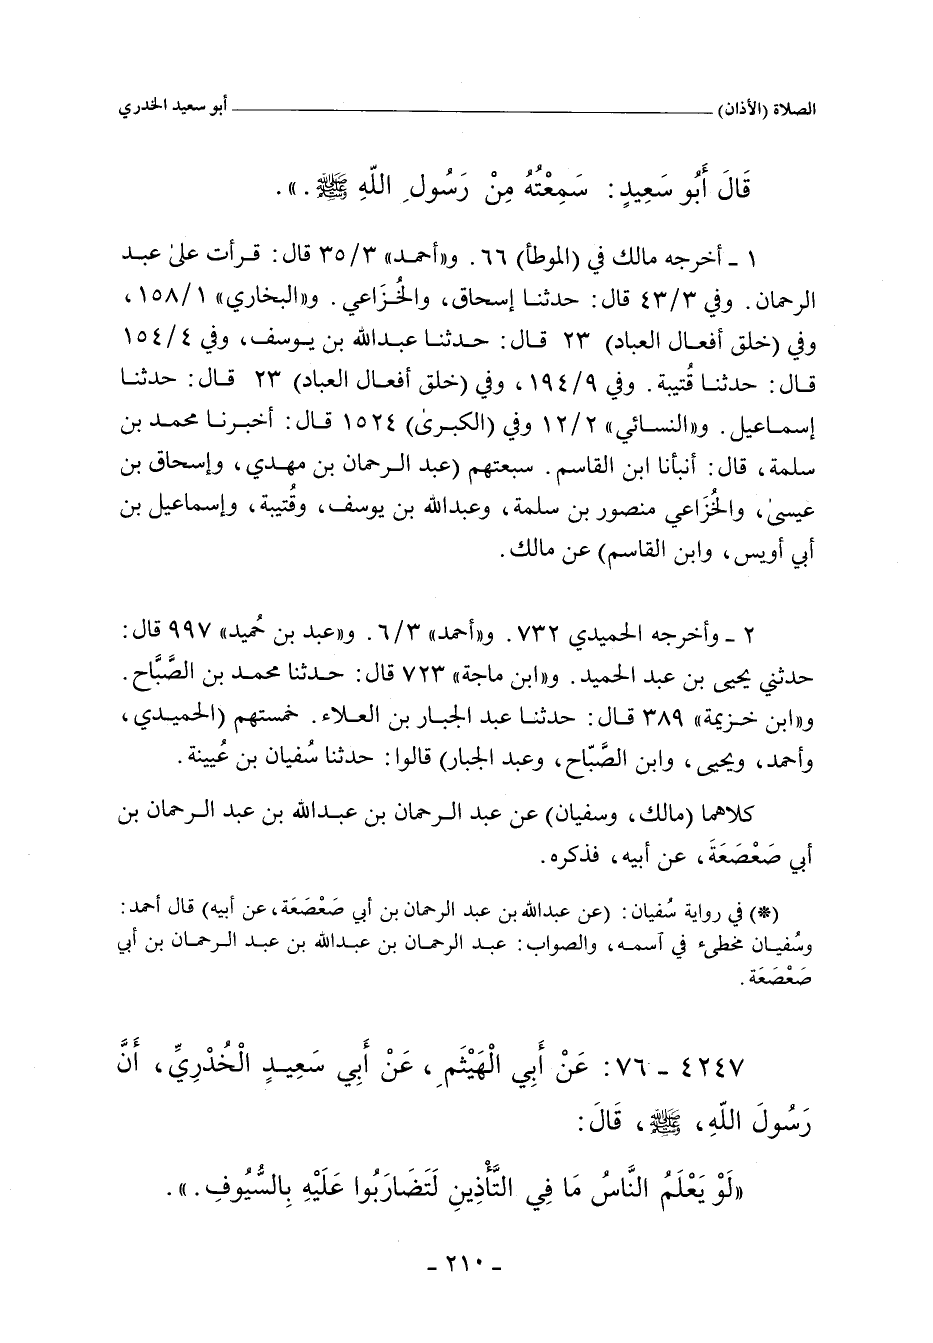 الصلاة (الأذان) أبو سعيد الخدري
قَالَ أَبُو سَعِيدٍ: سَمِعْتُهُ مِنْ رَسُولِ اللّهِ ﷺ.».
١ - أخرجه مالك في (الموطأ) ٦٦. و«أحمد» ٣/٣٥ قال: قرأت علىٰ عبد
الرحمان. وفي ٣/٤٣ قال: حدثنا إسحاق، والخُزَاعي. و«البخاري» ١/١٥٨،
وفي (خلق أفعال العباد) ٢٣ قال: حدثنا عبدالله بن يوسف، وفي ٤/١٥٤
قال: حدثنا قُتيبة. وفي ٩/١٩٤، وفي (خلق أفعال العباد) ٢٣ قال: حدثنا
إسماعيل. و«النسائي» ٢/١٢ وفي (الكبرىٰ) ١٥٢٤ قال: أخبرنا محمد بن
سلمة، قال: أنبأنا ابن القاسم. سبعتهم (عبد الرحمان بن مهدي، وإسحاق بن
عيسىٰ، والخُزَاعي منصور بن سلمة، وعبدالله بن يوسف، وقُتيبة، وإسماعيل بن
أبي أويس، وابن القاسم) عن مالك.
٢ - وأخرجه الحميدي ٧٣٢. و«أحمد» ٣/٦. و«عبد بن حُميد» ٩٩٧ قال:
حدثني يحيى بن عبد الحميد. و«ابن ماجة» ٧٢٣ قال: حدثنا محمد بن الصَّبَّاح.
و«ابن خزيمة» ٣٨٩ قال: حدثنا عبد الجبار بن العلاء. خمستهم (الحميدي،
وأحمد، ويحيى، وابن الصَّبَّاح، وعبد الجبار) قالوا: حدثنا سُفيان بن عُيينة.
كلاهما (مالك، وسفيان) عن عبد الرحمان بن عبدالله بن عبد الرحمان بن
أبي صَعْصَعَةَ، عن أبيه، فذكره.
(*) في رواية سُفيان: (عن عبدالله بن عبد الرحمان بن أبي صَعْصَعَة، عن أبيه) قال أحمد:
وسُفيان مخطىء في آسمه، والصواب: عبد الرحمان بن عبدالله بن عبد الرحمان بن أبي
صَعْصَعَة.
٤٢٤٧ - ٧٦: عَنْ أَبِي الْهَيْثَمِ، عَنْ أَبِي سَعِيدٍ الْخُدْرِيِّ، أَنَّ
رَسُولَ اللّهِ، ﷺ، قَالَ:
«لَوْ يَعْلَمُ النَّاسُ مَا فِي التَّأْذِينِ لَتَضَارَبُوا عَلَيْهِ بِالسُّيُوفِ.».
- ٢١٠ -